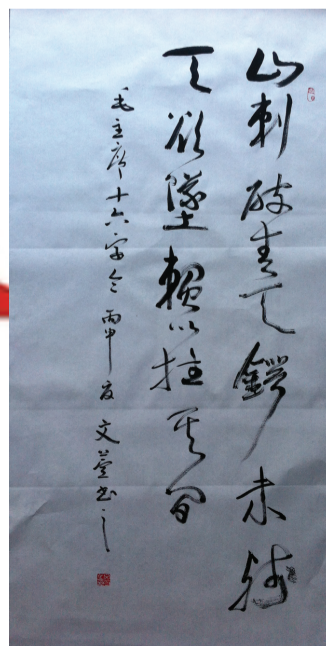 山刺破青天锷未残
天欲墜賴以拄其间
毛主席十六字令 丙申夏 文萱书之